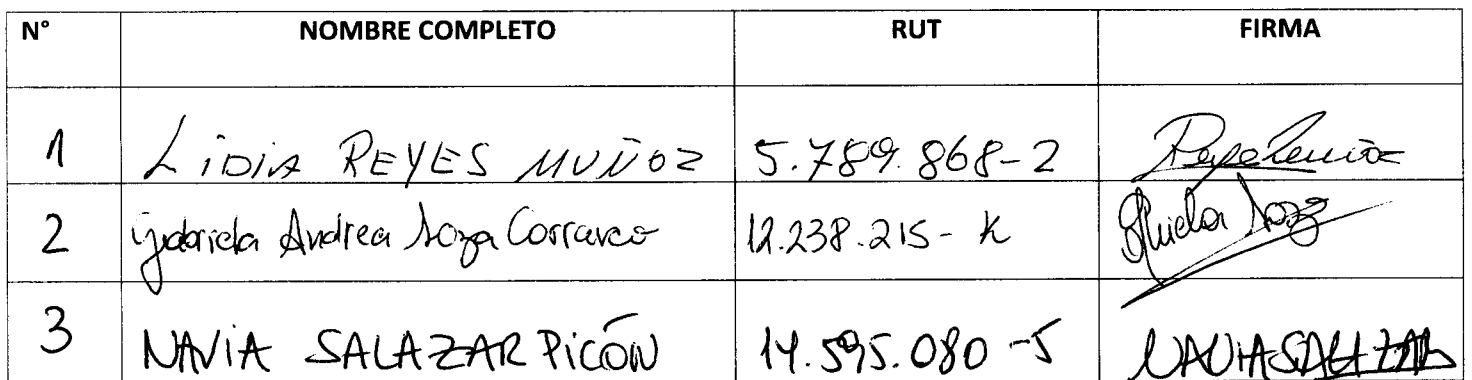 N° NOMBRE COMPLETO RUT FIRMA
1 LiDiA REYES MUÑOZ 5.789.868-2
2 Gabriela Andrea Soza Carrasco 12.238.215-K
3 NAViA SALAZAR PiCÓN 14.595.080-5 NAViA SALAZAR